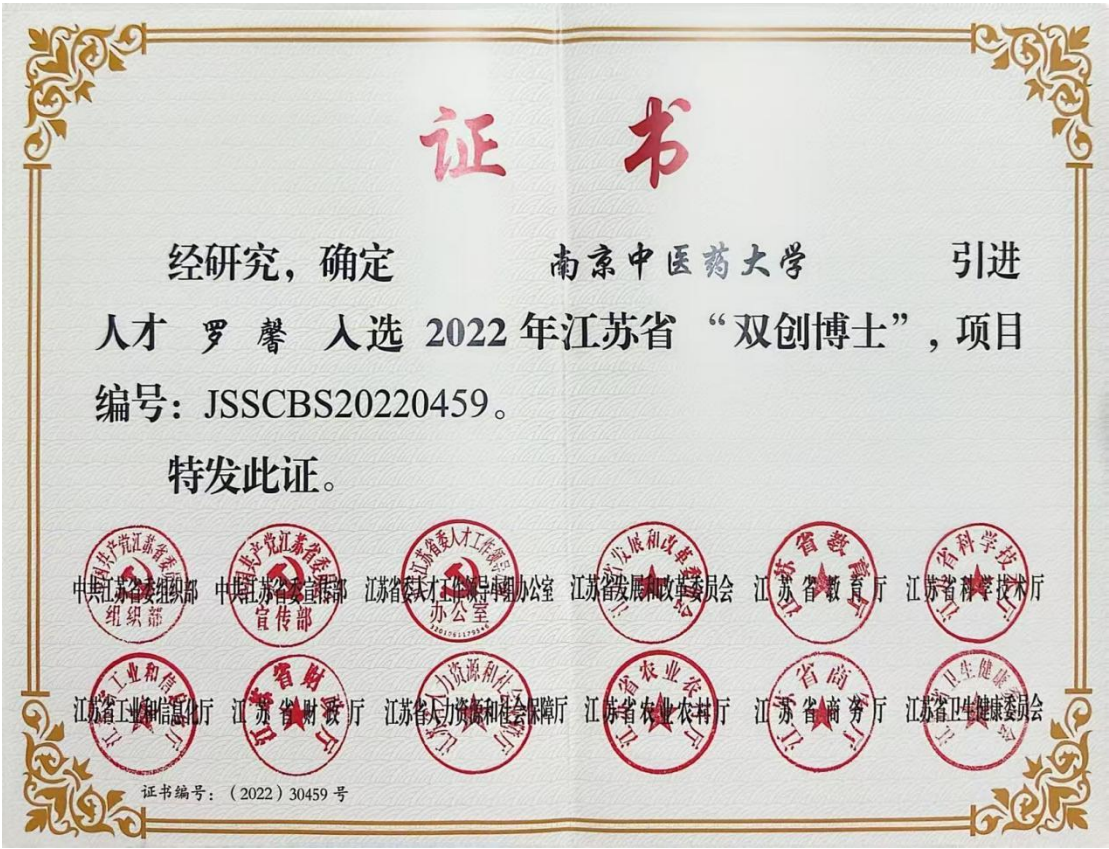 证 书
经研究，确定 南京中医药大学 引进
人才 罗馨 入选 2022 年江苏省 “双创博士”，项目
编号：JSSCBS20220459。
特发此证。
中共江苏省委组织部 中共江苏省委宣传部 江苏省委人才工作领导小组办公室 江苏省发展和改革委员会 江苏省教育厅 江苏省科学技术厅
江苏省工业和信息化厅 江苏省财政厅 江苏省人力资源和社会保障厅 江苏省农业农村厅 江苏省商务厅 江苏省卫生健康委员会
证书编号：（2022）30459 号